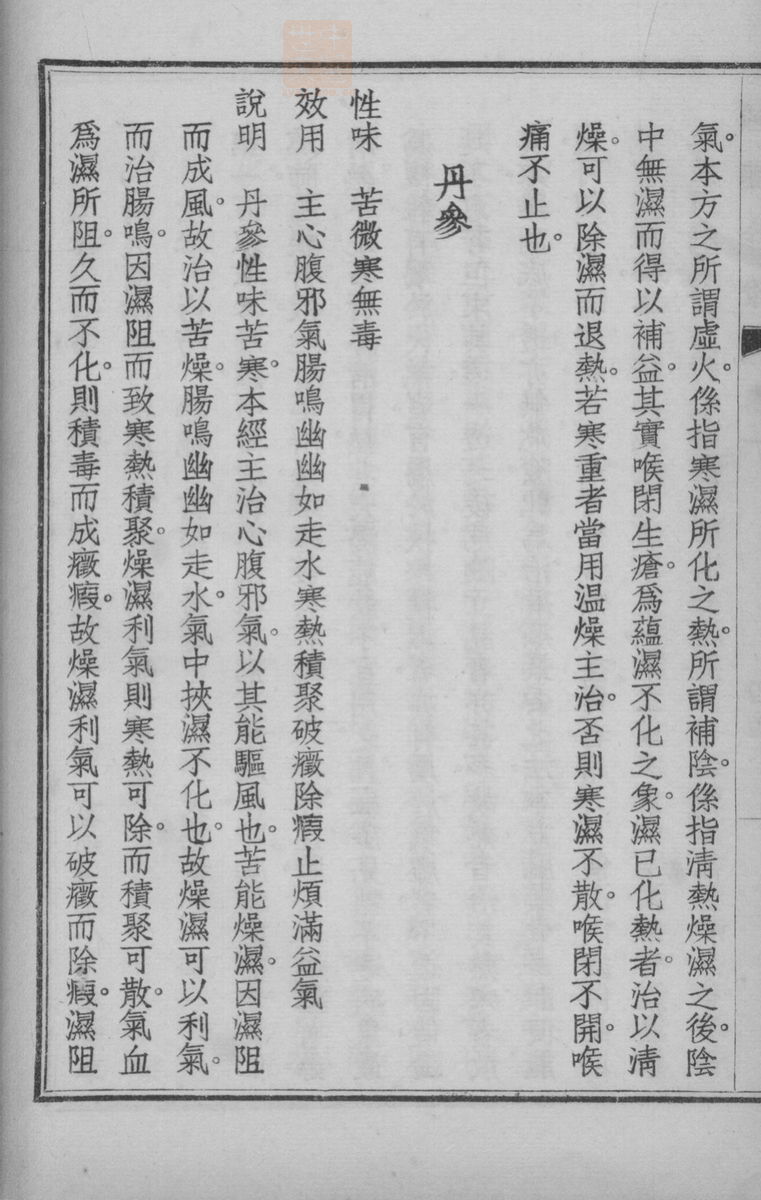 氣。本方之所謂虛火。係指寒濕所化之熱。所謂補陰。係指淸熱燥濕之後。陰
中無濕而得以補益。其實喉閉生瘡。爲蘊濕不化之象。濕已化熱者。治以淸
燥。可以除濕而退熱。若寒重者當用温燥主治。否則寒濕不散。喉閉不開。喉
痛不止也。
丹參
性味　苦微寒無毒
效用　主心腹邪氣腸鳴幽幽如走水寒熱積聚破癥除瘕止煩滿益氣
說明　丹參性味苦寒。本經主治心腹邪氣。以其能驅風也。苦能燥濕。因濕阻
而成風。故治以苦燥。腸鳴幽幽如走水。氣中挾濕不化也。故燥濕可以利氣。
而治腸鳴。因濕阻而致寒熱積聚。燥濕利氣則寒熱可除。而積聚可散。氣血
爲濕所阻。久而不化。則積毒而成癥瘕。故燥濕利氣可以破癥而除瘕。濕阻